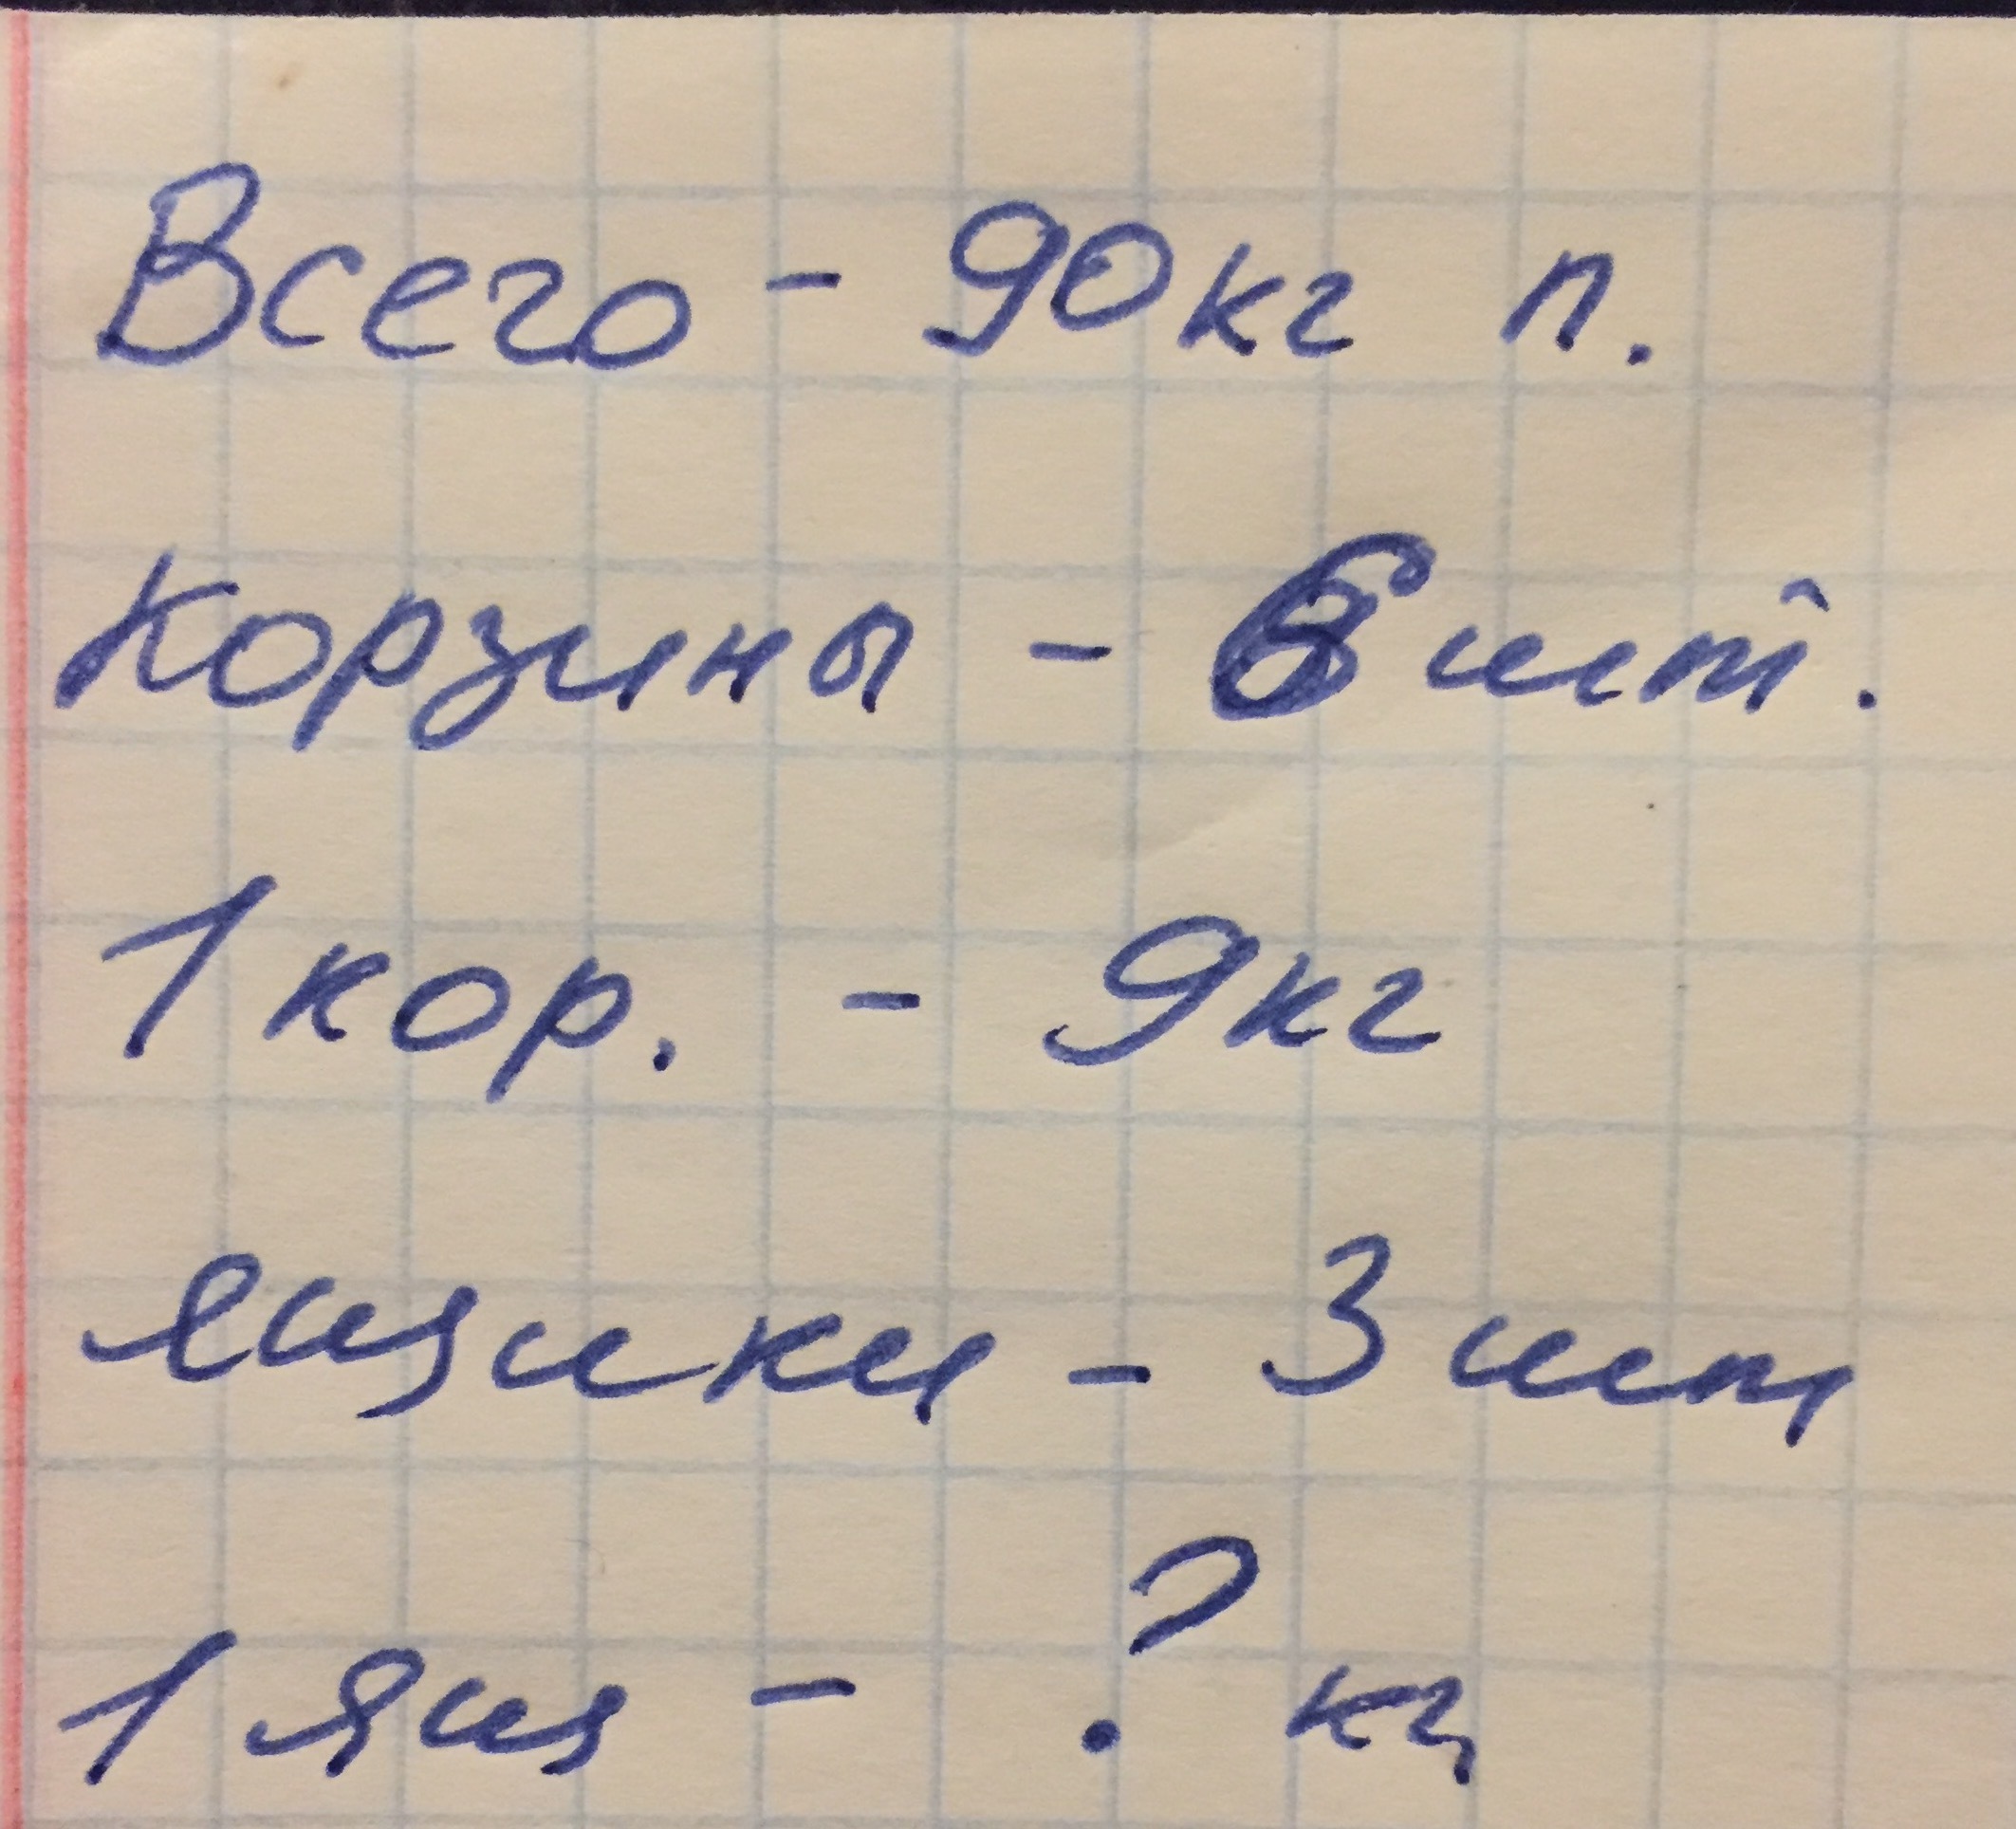 Всего - 90 кг п.
Корзины - 6 шт.
1 кор. - 9 кг
ящики - 3 шт
1 ящ - ? кг